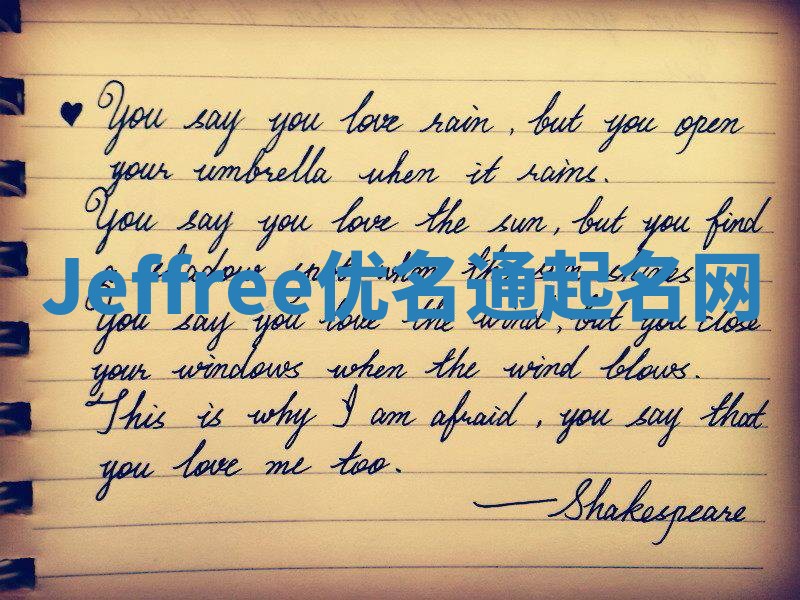 ♥ You say you love rain, but you open
your umbrella when it rains.
You say you love the sun, but you find
a shadow spot when the sun shines.
Jeffree优名通起名网
You say you love the wind, but you close
your windows when the wind blows.
This is why I am afraid, you say that
you love me too.
—Shakespeare